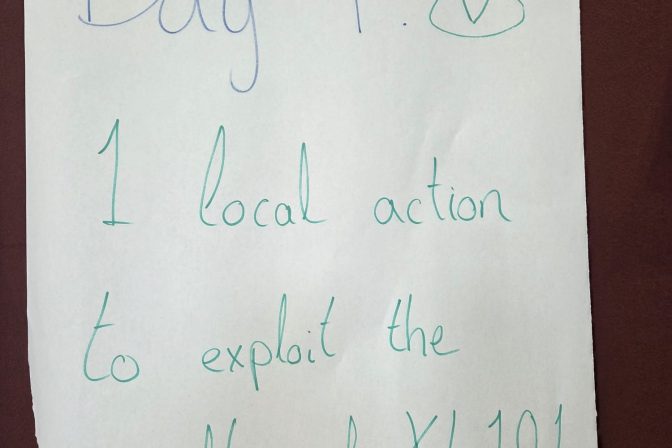 Day 1.
1 local action
to exploit the